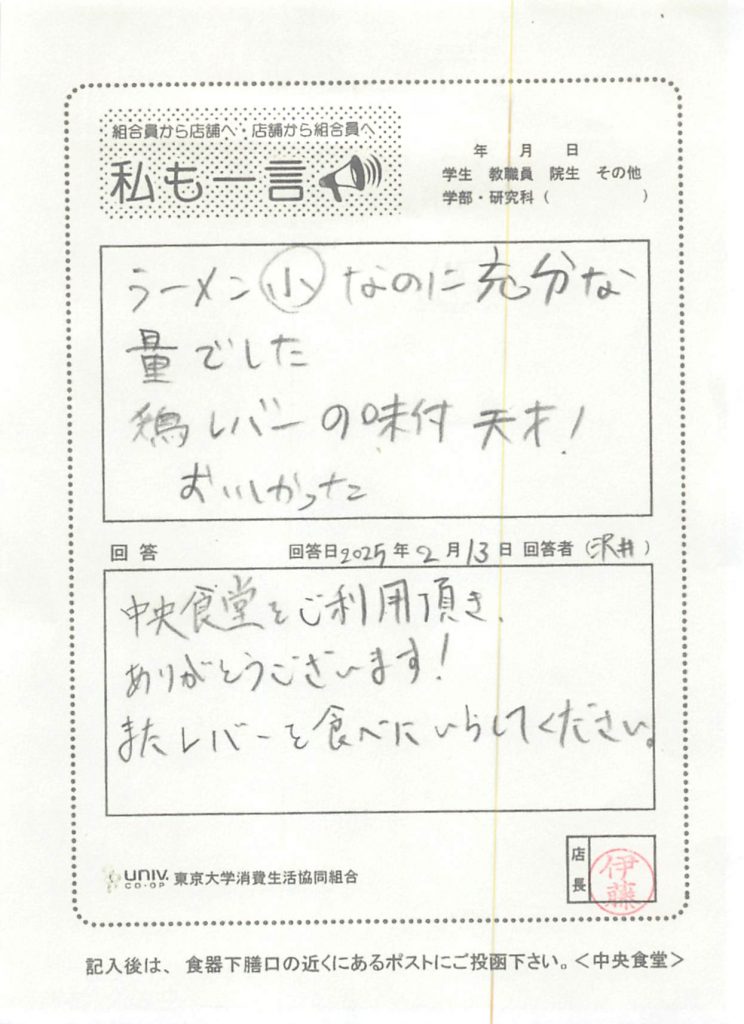 組合員から店舗へ・店舗から組合員へ
私も一言
年 月 日
学生 教職員 院生 その他
学部・研究科 ( )
ラーメン小なのに充分な
量でした
鶏レバーの味付 天才!
おいしかった
回答 回答日2025年2月13日 回答者(沢井)
中央食堂をご利用頂き、
ありがとうございます!
またレバーを食べにいらしてください。
UNIV. CO-OP 東京大学消費生活協同組合
店長 伊藤
記入後は、食器下膳口の近くにあるポストにご投函下さい。<中央食堂>